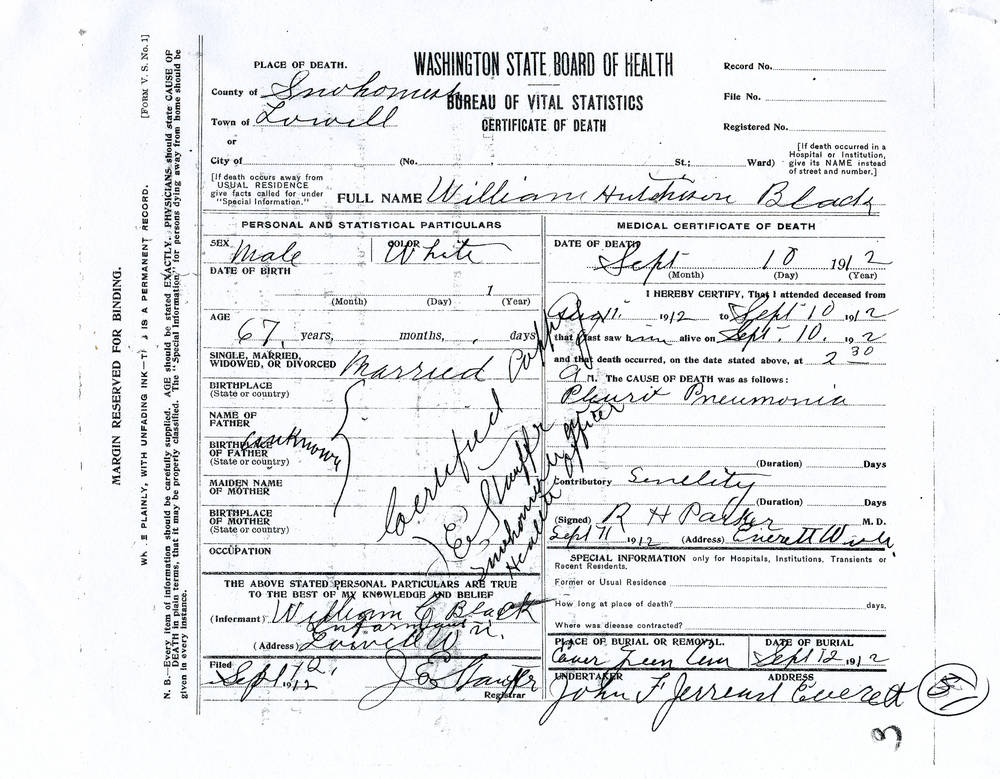 WASHINGTON STATE BOARD OF HEALTH
BUREAU OF VITAL STATISTICS
CERTIFICATE OF DEATH
PLACE OF DEATH.
County of Snohomish
Town of Lowell
or
City of (No. St.; Ward)
Record No.
File No.
Registered No.
[If death occurred in a
Hospital or Institution,
give its NAME instead
of street and number.]
[If death occurs away from
USUAL RESIDENCE
give facts called for under
"Special Information."
FULL NAME William Hutchison Black
PERSONAL AND STATISTICAL PARTICULARS
SEX Male COLOR White
DATE OF BIRTH
1
(Month) (Day) (Year)
AGE
67 years, months, days
SINGLE, MARRIED,
WIDOWED, OR DIVORCED Married
BIRTHPLACE
(State or country)
NAME OF
FATHER
BIRTHPLACE
OF FATHER
(State or country)
unknown
MAIDEN NAME
OF MOTHER
BIRTHPLACE
OF MOTHER
(State or country)
OCCUPATION
Certified Copy of
J E Stauffer
Snohomish Co
Health Officer
THE ABOVE STATED PERSONAL PARTICULARS ARE TRUE
TO THE BEST OF MY KNOWLEDGE AND BELIEF
(Informant) William C Black
Informant
(Address) Lowell Wn.
Filed
Sept 12, 1912 J E Stauffer
Registrar
MEDICAL CERTIFICATE OF DEATH
DATE OF DEATH
Sept 10 1912
(Month) (Day) (Year)
I HEREBY CERTIFY, That I attended deceased from
Aug 11. 1912 to Sept 10 1912
that I last saw him alive on Sept. 10. 1912
and that death occurred, on the date stated above, at 2 30
M. The CAUSE OF DEATH was as follows:
Pneumonia
(Duration) Days
Contributory Senility
(Duration) Days
(Signed) R H Parker M. D.
Sept 11 1912 (Address) Everett Wash.
SPECIAL INFORMATION only for Hospitals, Institutions, Transients or
Recent Residents.
Former or Usual Residence
How long at place of death? days.
Where was disease contracted?
PLACE OF BURIAL OR REMOVAL. DATE OF BURIAL
Green Cem Sept 12 1912
UNDERTAKER ADDRESS
John F Jerread Everett
5
3
MARGIN RESERVED FOR BINDING.
PLAINLY, WITH UNFADING INK—T IS A PERMANENT RECORD. [FORM V. S. No. 1]
N. B.—Every item of information should be carefully supplied. AGE should be stated EXACTLY. PHYSICIANS should state CAUSE OF
DEATH in plain terms, that it may be properly classified. The "Special Information" for persons dying away from home should be
given in every instance.